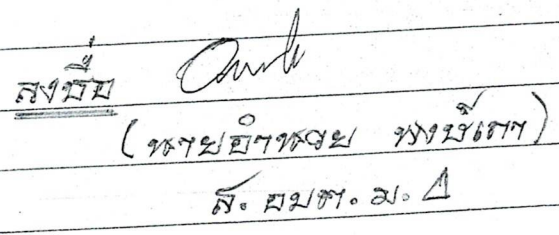 ลงชื่อ
(นายอำนวย พงษ์เภา)
ส. อบต. ม. 1